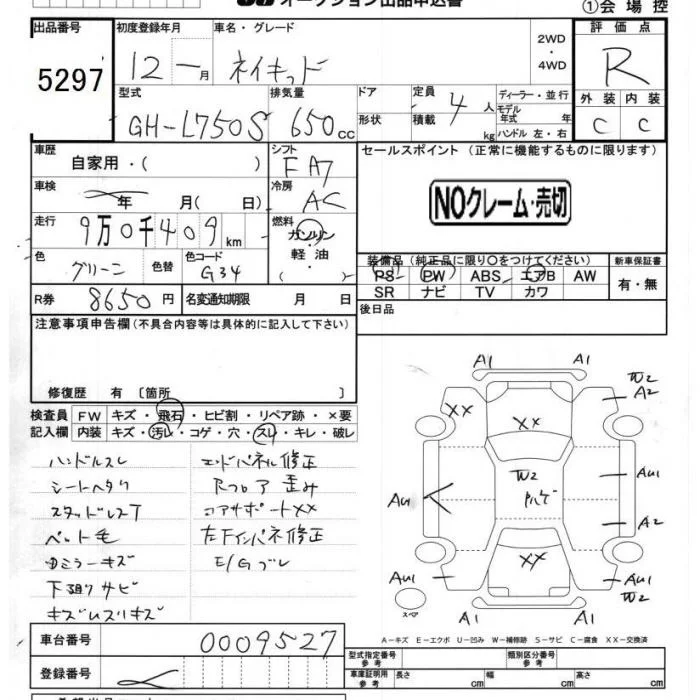 オークション出品申込書
①会場控
出品番号 初度登録年月 車名・グレード 評価点
5297 12 一月 ネイキッド 2WD ・ 4WD R
型式 排気量 ドア 定員 ディーラー・並行 外装 内装
GH-L750S 650 cc 形状 4人 積載 kg モデル年式 年 ハンドル 左・右 C C
車歴 シフト セールスポイント (正常に機能するものに限ります)
自家用・( ) FA7
車検 年 月( 日) 冷房 AC
NOクレーム・売切
走行 9万0千409 km 燃料 ガソリン 軽油 ( )
色 グリーン 色替 色コード G34
装備品 (純正品に限り○をつけてください) 新車保証書
PS PW ABS エアB AW 有・無
SR ナビ TV カワ
R券 8650円 名変通知期限 月 日 後日品
注意事項申告欄 (不具合内容等は具体的に記入して下さい)
修復歴 有 〔箇所 〕
検査員 FW キズ・飛石・ヒビ割・リペア跡・×要
記入欄 内装 キズ・汚レ・コゲ・穴・スレ・キレ・破レ
ハンドルスレ エンドパネル修正
シートヘタリ Rフロア歪み
スタッドレスT コアサポートXX
ペット毛 左Fインパネ修正
ミラーキズ E/Gブレ
下廻りサビ
A1 A1
W2
A2
XX
XX
W2
AU1 AU1
A2
XX
AU1 AU1
W2
A1 A1
スペア
A－キズ E－エクボ U－凹み W－補修跡 S－サビ C－腐食 XX－交換済
車台番号 0009527
型式指定番号 参考 類別区分番号 参考
登録番号
車庫証明用 参考 長さ cm 幅 cm 高さ cm